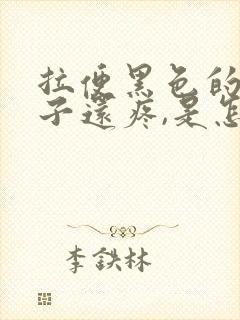 拉便黑色的
子還疼,是怎
李鉄林